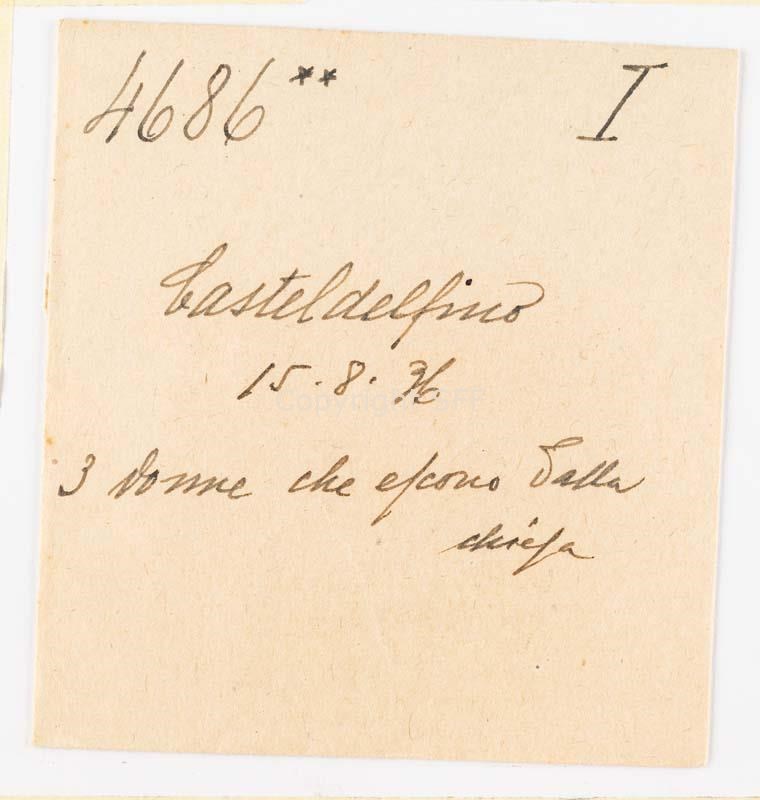 4686** I
Casteldelfino
15.8.36
3 donne che escono dalla
chiesa